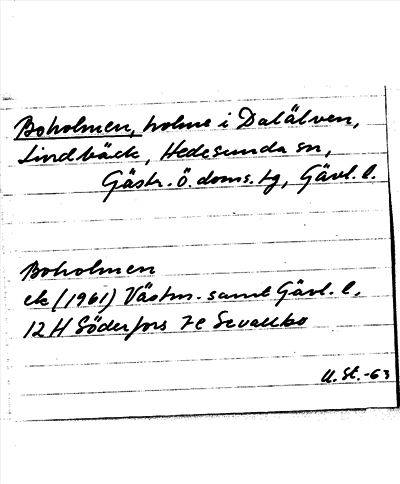 Boholmen, holme i Dalälven,
Lindbäck, Hedesunda sn,
Gästr. ö. doms. tg, Gävl. l.
Boholmen
ek (1961) Västm. samt Gävl. l,
12 H Söderfors 7e Sevallbo
U. St. -63